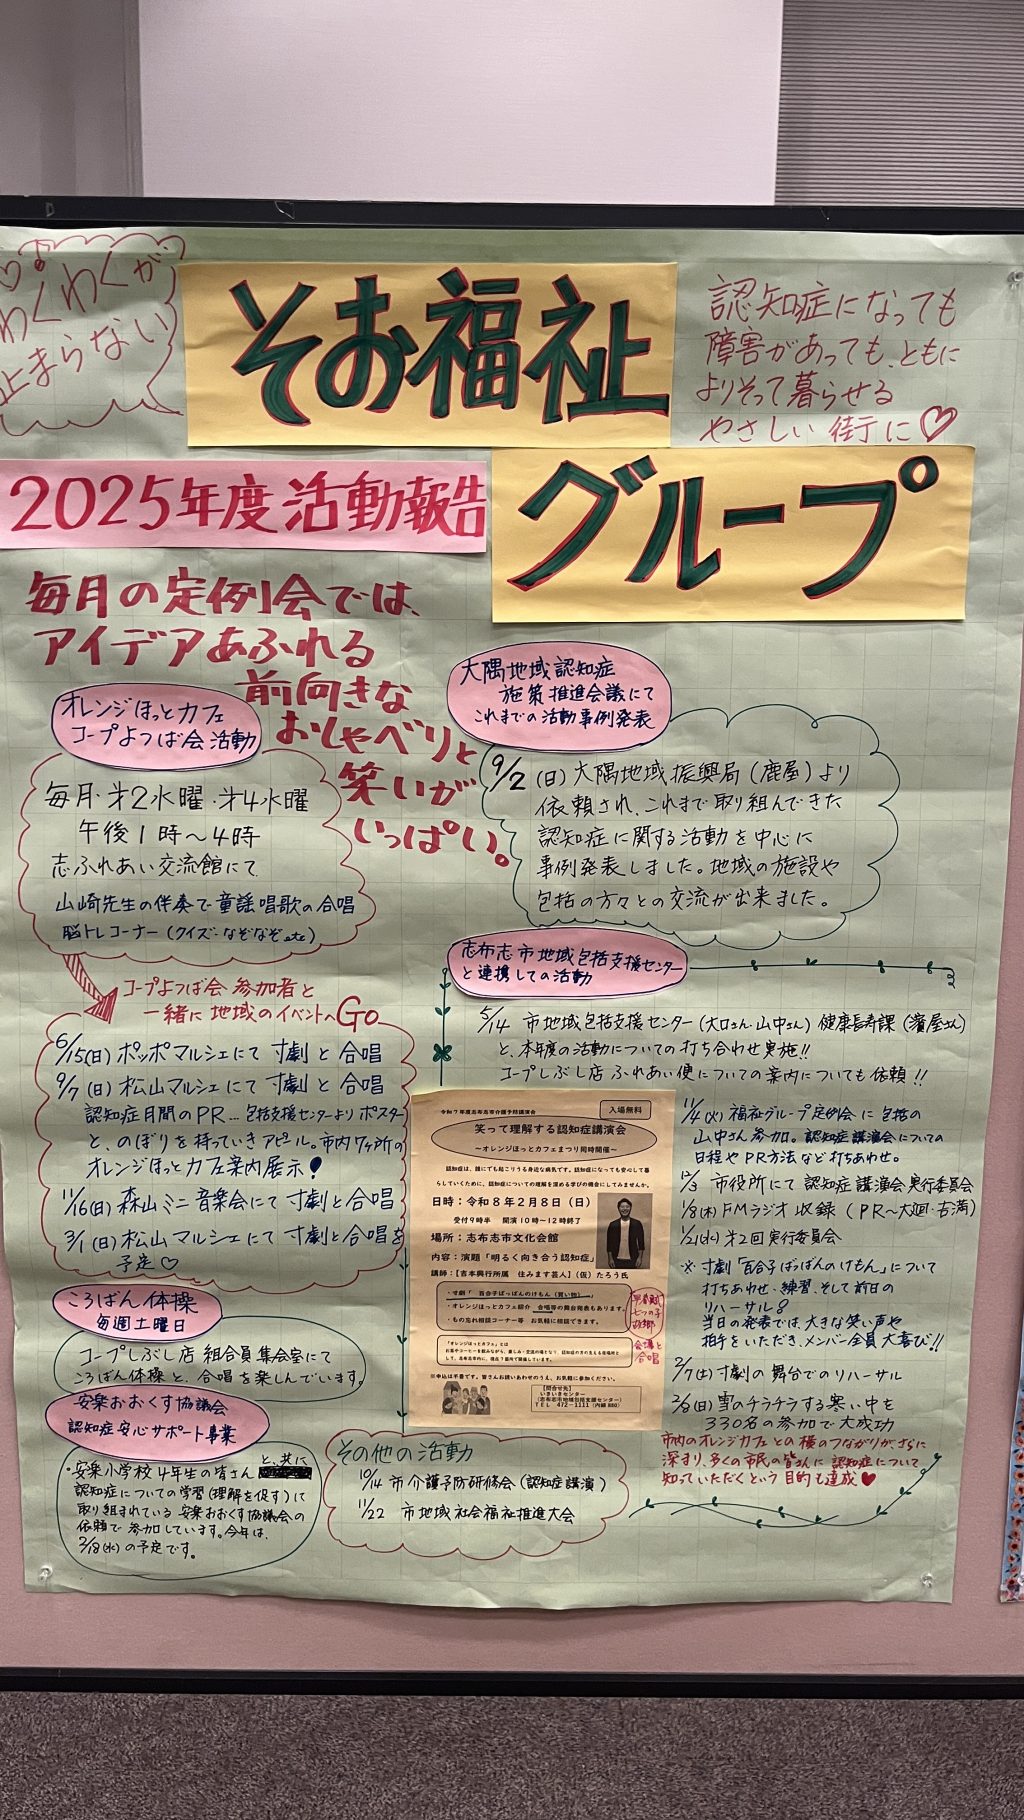 わくわくが
止まらない
そお福祉
グループ
認知症になっても
障害があっても、ともに
よりそって暮らせる
やさしい街に♡
2025年度活動報告
毎月の定例会では、
アイデアあふれる
前向きな
おしゃべりと
笑いが
いっぱい。
オレンジほっとカフェ
コープよつば会活動
毎月・才2水曜・才4水曜
午後1時～4時
志ふれあい交流館にて
山崎先生の伴奏で童謡唱歌の合唱
脳トレコーナー(クイズ・なぞなぞetc)
コープよつば会参加者と
一緒に地域のイベントへGo
6/15(日)ポッポマルシェにて寸劇と合唱
9/7(日)松山マルシェにて寸劇と合唱
認知症月間のPR…包括支援センターよりポスター
と、のぼりを持っていきアピール。市内7ヶ所の
オレンジほっとカフェ案内展示!
11/16(日)森山ミニ音楽会にて寸劇と合唱
3/1(日)松山マルシェにて寸劇と合唱を
予定♡
ころばん体操
毎週土曜日
コープしぶし店 組合員集会室にて
ころばん体操と、合唱を楽しんでいます。
安楽おおくす協議会
認知症安心サポート事業
・安楽小学校4年生の皆さんと、共に
認知症についての学習(理解を促す)に
取り組まれている安楽おおくす協議会の
依頼で参加しています。今年は、
2/18(水)の予定です。
大隅地域認知症
施策推進会議にて
これまでの活動事例発表
9/2(日)大隅地域振興局(鹿屋)より
依頼され、これまで取り組んできた
認知症に関する活動を中心に
事例発表しました。地域の施設や
包括の方々との交流が出来ました。
志布志市地域包括支援センター
と連携しての活動
5/14 市地域包括支援センター(大口さん・山中さん)健康長寿課(濵屋さん)
と、本年度の活動についての打ち合わせ実施!!
コープしぶし店ふれあい便についての案内についても依頼!!
令和7年度志布志市介護予防講演会
入場無料
笑って理解する認知症講演会
～オレンジほっとカフェまつり同時開催～
認知症は、誰にでも起こりうる身近な病気です。認知症になっても安心して暮
らしていくために、認知症についての理解を深める学びの機会にしてみませんか。
日時：令和8年2月8日（日）
受付9時半 開演10時～12時終了
場所：志布志市文化会館
内容：演題「明るく向き合う認知症」
講師：【吉本興行所属 住みます芸人】(仮)たろう氏
・寸劇「 百合子ばっばんのけもん（買い物） 」
・オレンジほっとカフェ紹介 合唱等の舞台発表もあります。
・もの忘れ相談コーナー等 お気軽に相談できます。
早春賦
七つの子
故郷
会場と
合唱
「オレンジほっとカフェ」とは
※申込は不要です。皆さんお誘いあわせのうえ、お気軽に参加ください。
【問合せ先】
いきいきセンター
(志布志市地域包括支援センター)
TEL 472-1111（内線880）
11/4(火)福祉グループ定例会に包括の
山中さん参加。認知症講演会についての
日程やPR方法など打ちあわせ。
12/3 市役所にて認知症講演会実行委員会
1/8(木)FMラジオ収録(PR～大迫・吉満)
1/21(水)才2回実行委員会
※寸劇「百合子ばっばんのけもん」について
打ちあわせ、練習、そして前日の
リハーサル。
当日の発表では、大きな笑い声や
拍手をいただき、メンバー全員大喜び!!
2/7(土)寸劇の舞台でのリハーサル
2/8(日)雪のチラチラする寒い中を
330名の参加で大成功
市内のオレンジカフェとの横のつながりが、さらに
深まり、多くの市民の皆さんに認知症について
知っていただくという目的も達成♥
その他の活動
10/14 市介護予防研修会(認知症講演)
11/22 市地域社会福祉推進大会